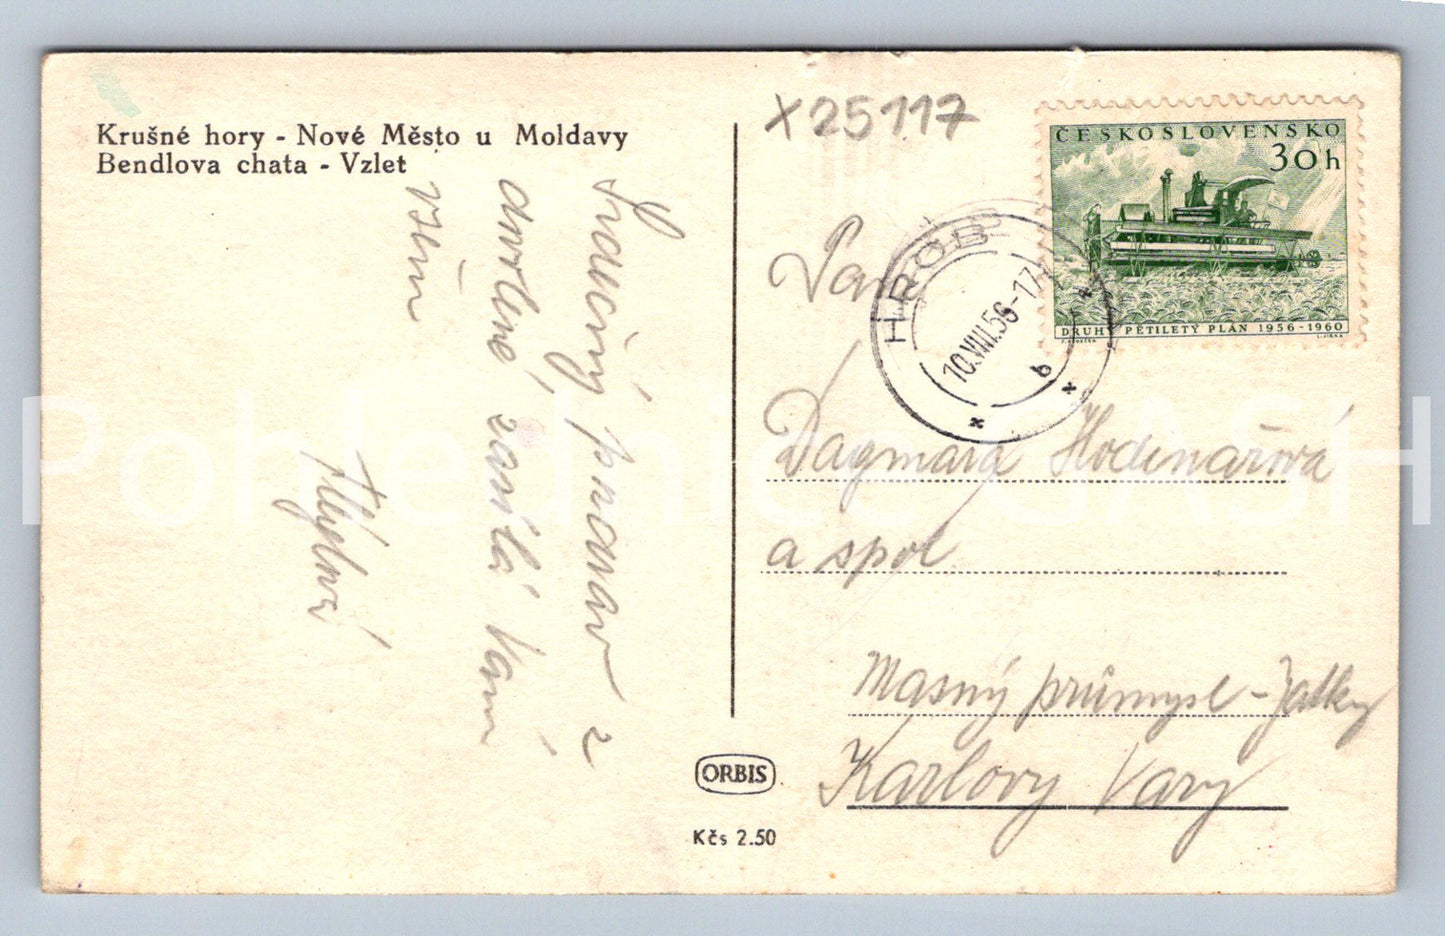 Krušné hory - Nové Město u Moldavy
Bendlova chata - Vzlet
X25117
ČESKOSLOVENSKO
30h
DRUHÝ PĚTILETÝ PLÁN 1956-1960
HROB
10.VIII.56-17
b
Srdečný pozdrav z
dovolené, zasílá Vám
všem
Pohlednice SASH
Dagmara Hodinářová
a spol.
Masný průmysl - Jatky
Karlovy Vary
ORBIS
Kčs 2.50